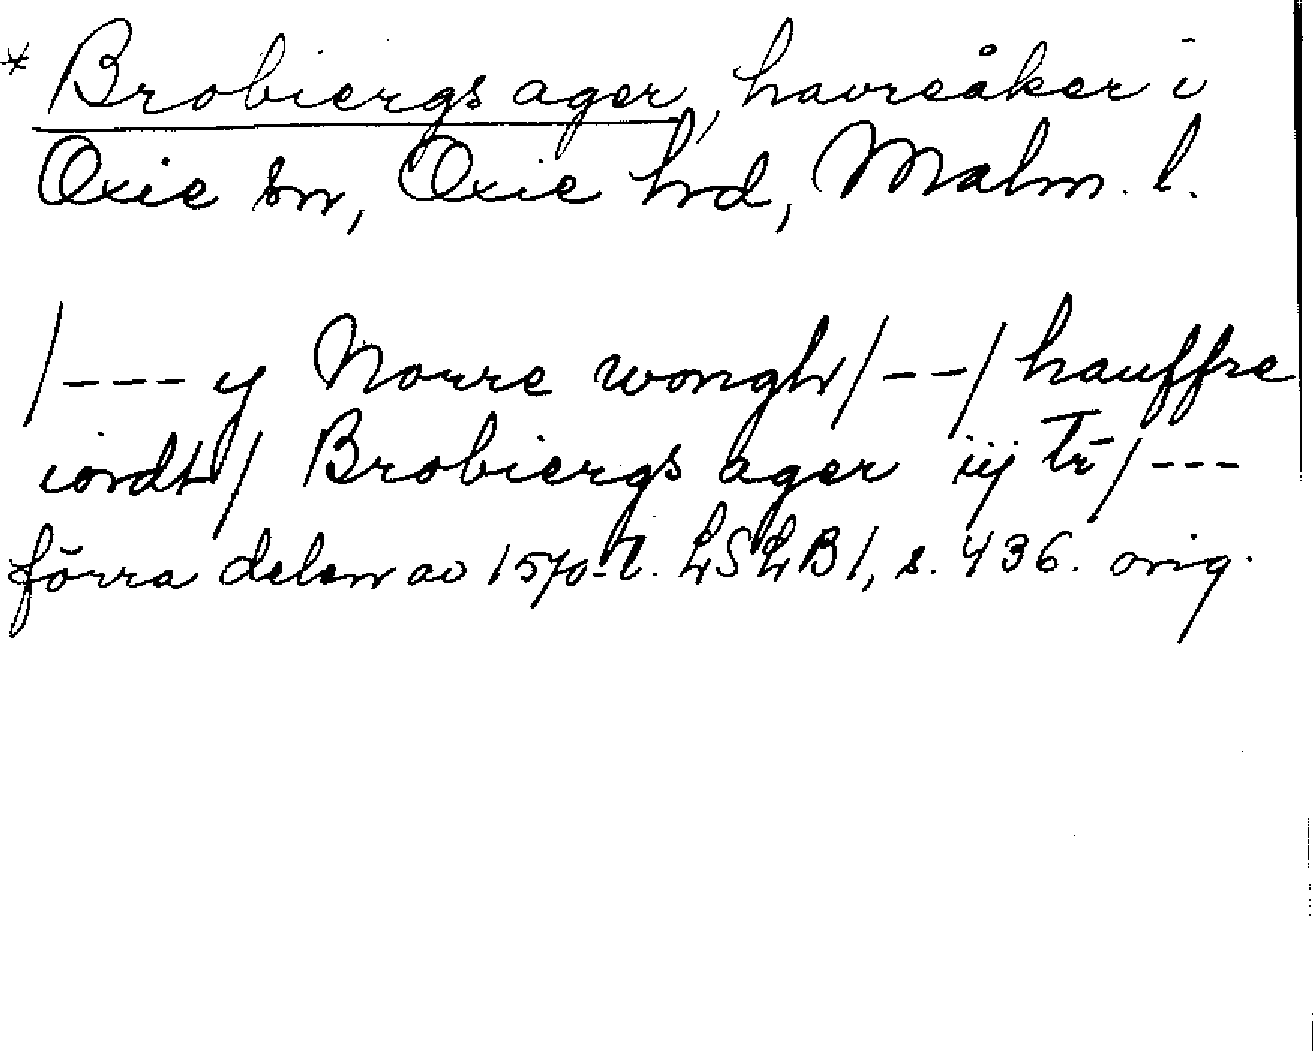 * Brobiergs ager, havreåker i
Oxie sn, Oxie hd, Malm. l.
/--- y Norre wongh/--/ hauffre
iordt/ Brobiergs ager iij Tr̄/---
förra delen av 1570-t. LSLB1, s. 436. orig.